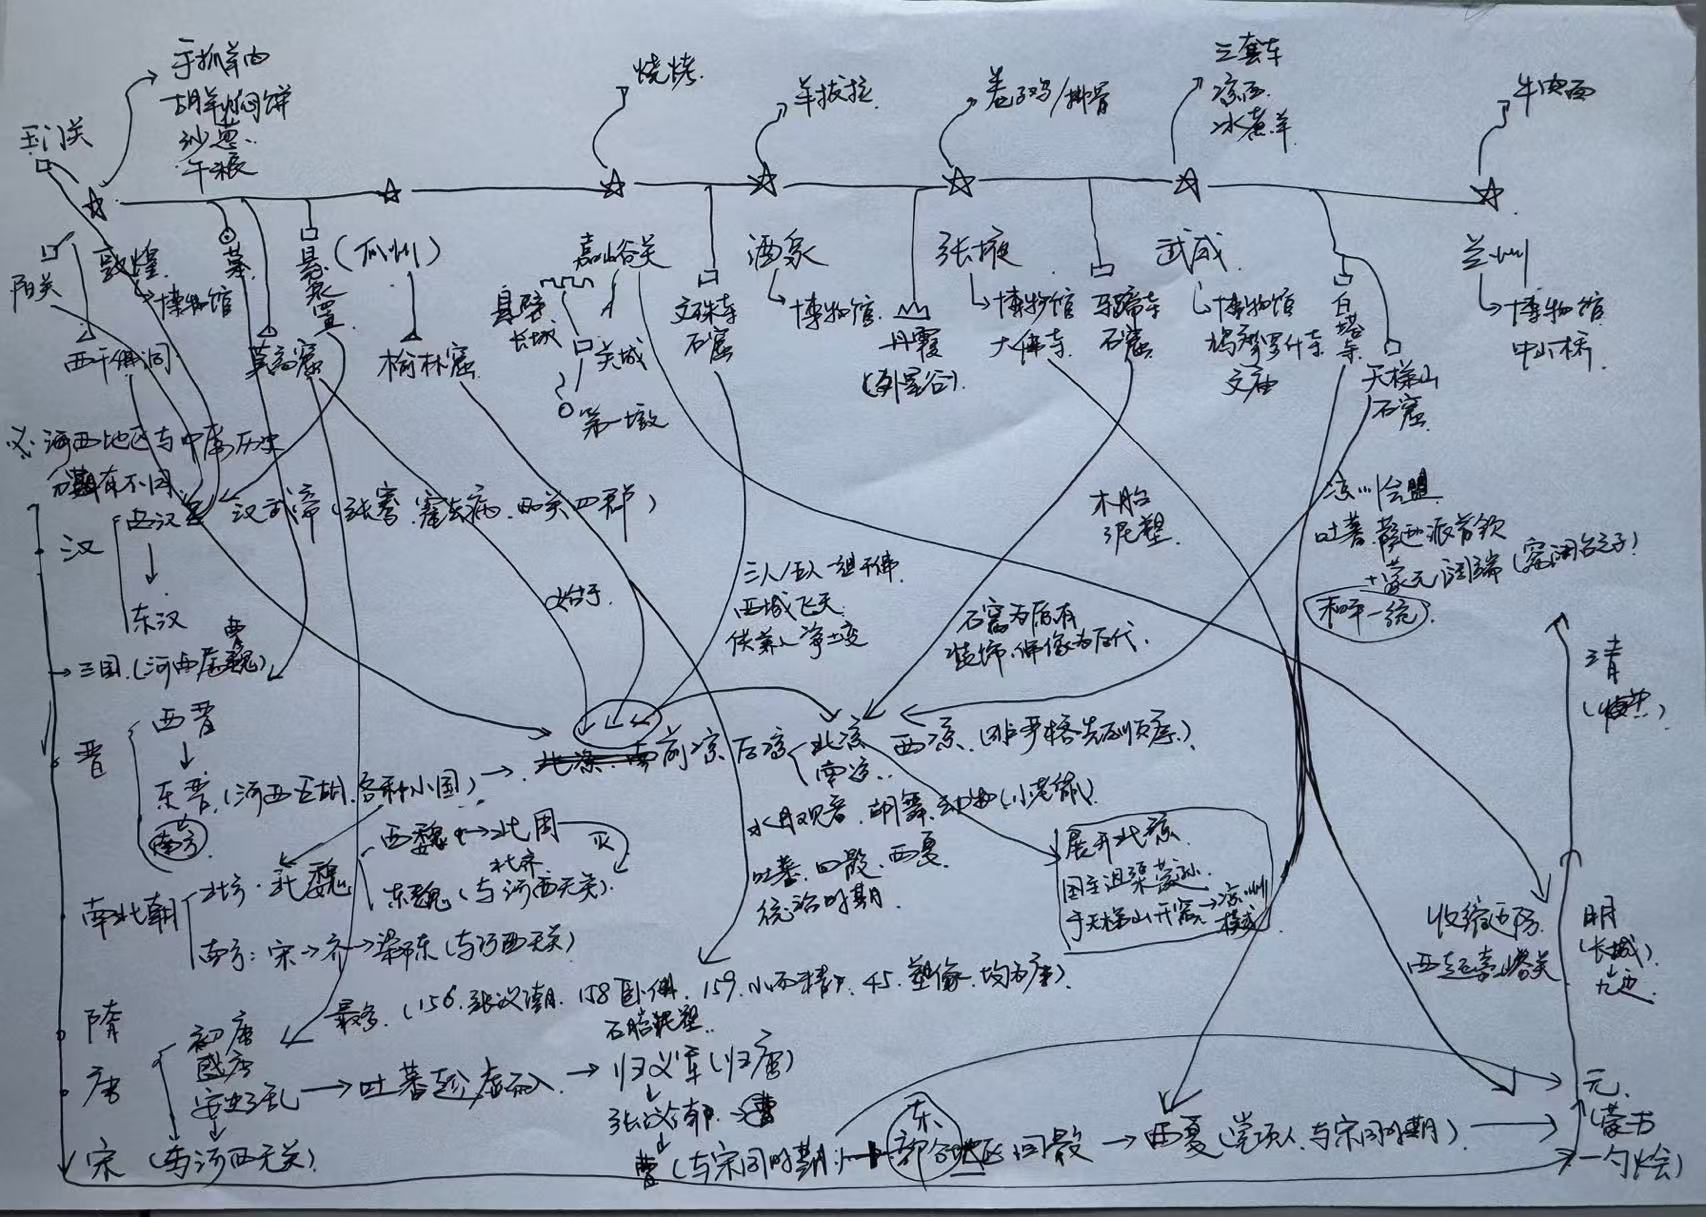 手抓羊肉
胡羊焖饼
沙葱
烧烤
羊拔拉
卷子鸡/排骨
三套车
凉面
冰煮羊
牛肉面
玉门关
阳关
敦煌
博物馆
西千佛洞
墓
莫高窟
悬泉置
(瓜州)
榆林窟
嘉峪关
悬壁
长城
关城
第一墩
文殊寺
石窟
酒泉
博物馆
丹霞
张掖
博物馆
大佛寺
马蹄寺
石窟
武威
博物馆
鸠摩罗什寺
文庙
白塔寺
天梯山
石窟
兰州
博物馆
中山桥
河西地区与中原历史
分期有不同
汉
西汉
汉武帝(张骞.霍去病.两关四郡)
东汉
始于
三人/五人一组千佛
西域飞天
供养人 净土变
木胎
泥塑
石窟为原有
装饰.佛像为后代.
凉州会盟
吐蕃 萨迦派
+蒙元阔端(窝阔台之子)
和平一统
三国.(河西属曹魏)
晋
西晋
东晋.(河西五胡.各种小国)
南方
前凉 后凉 北凉 西凉.(非严格先后顺序)
南凉
水月观音.胡舞.动物(小老鼠)
吐蕃.回鹘.西夏
统治时期.
展开北凉
国主沮渠蒙逊
于天梯山开窟→凉州
模式
南北朝
北方.北魏
西魏→北周
灭
北齐
东魏(与河西无关).
南方:宋→齐→梁→陈(与河西无关)
隋
唐
初唐
盛唐
安史之乱→吐蕃趁虚而入→归义军(归唐)
最多.(156.张议潮.158卧佛.159.45.塑像.均为唐)
石胎泥塑
张议潮→曹
曹(与宋同时期)
东
部分地区回鹘→西夏(党项人.与宋同时期)
宋(与河西无关)
清
明
(长城)
九边
收缩边防
西起嘉峪关
元.
(蒙古
一勺烩)